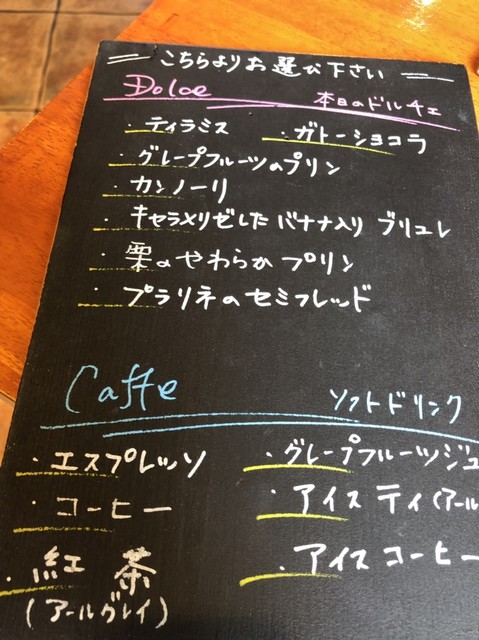 こちらよりお選び下さい
Dolce 本日のドルチェ
・ティラミス ・ガトーショコラ
・グレープフルーツのプリン
・カンノーリ
・キャラメリゼしたバナナ入りブリュレ
・栗のやわらかプリン
・プラリネのセミフレッド
Caffe ソフトドリンク
・エスプレッソ ・グレープフルーツジュ
・コーヒー ・アイスティ(アール
・紅茶 ・アイスコーヒー
(アールグレイ)